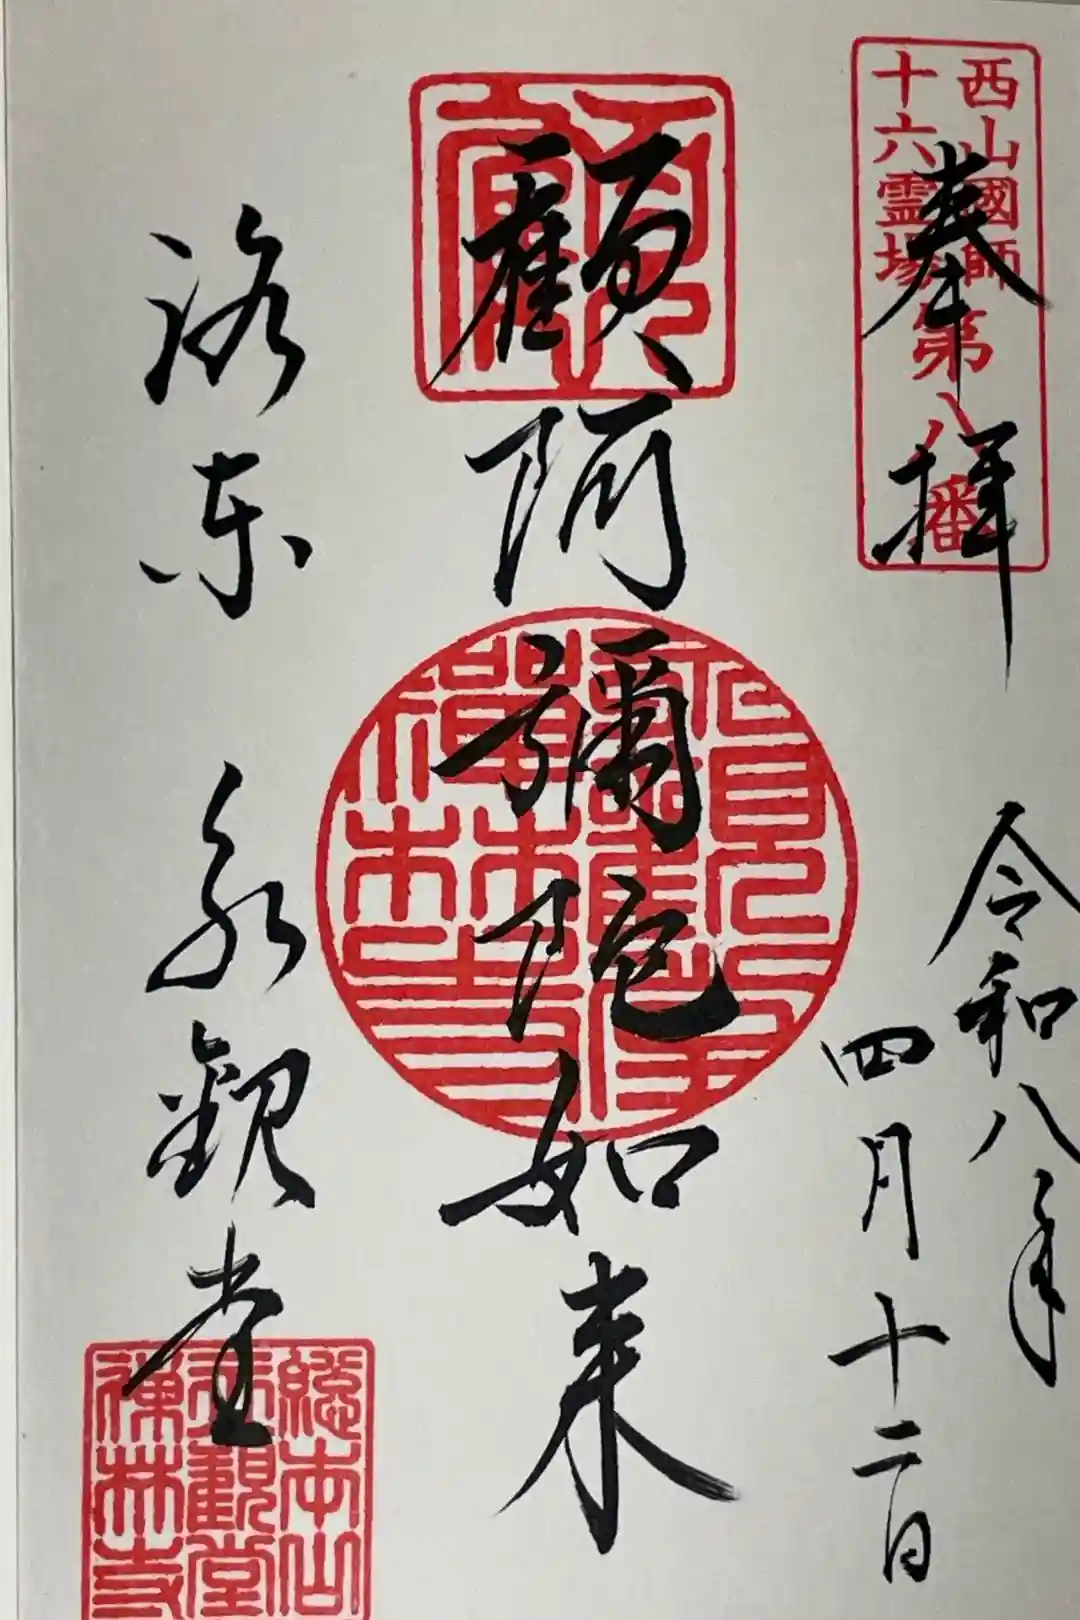 西山國師
十六霊場
第八番
奉拝
令和八年
四月十二日
顧
顧阿彌陀如来
禅林寺
洛東 永観堂
総本山
永觀堂
禅林寺